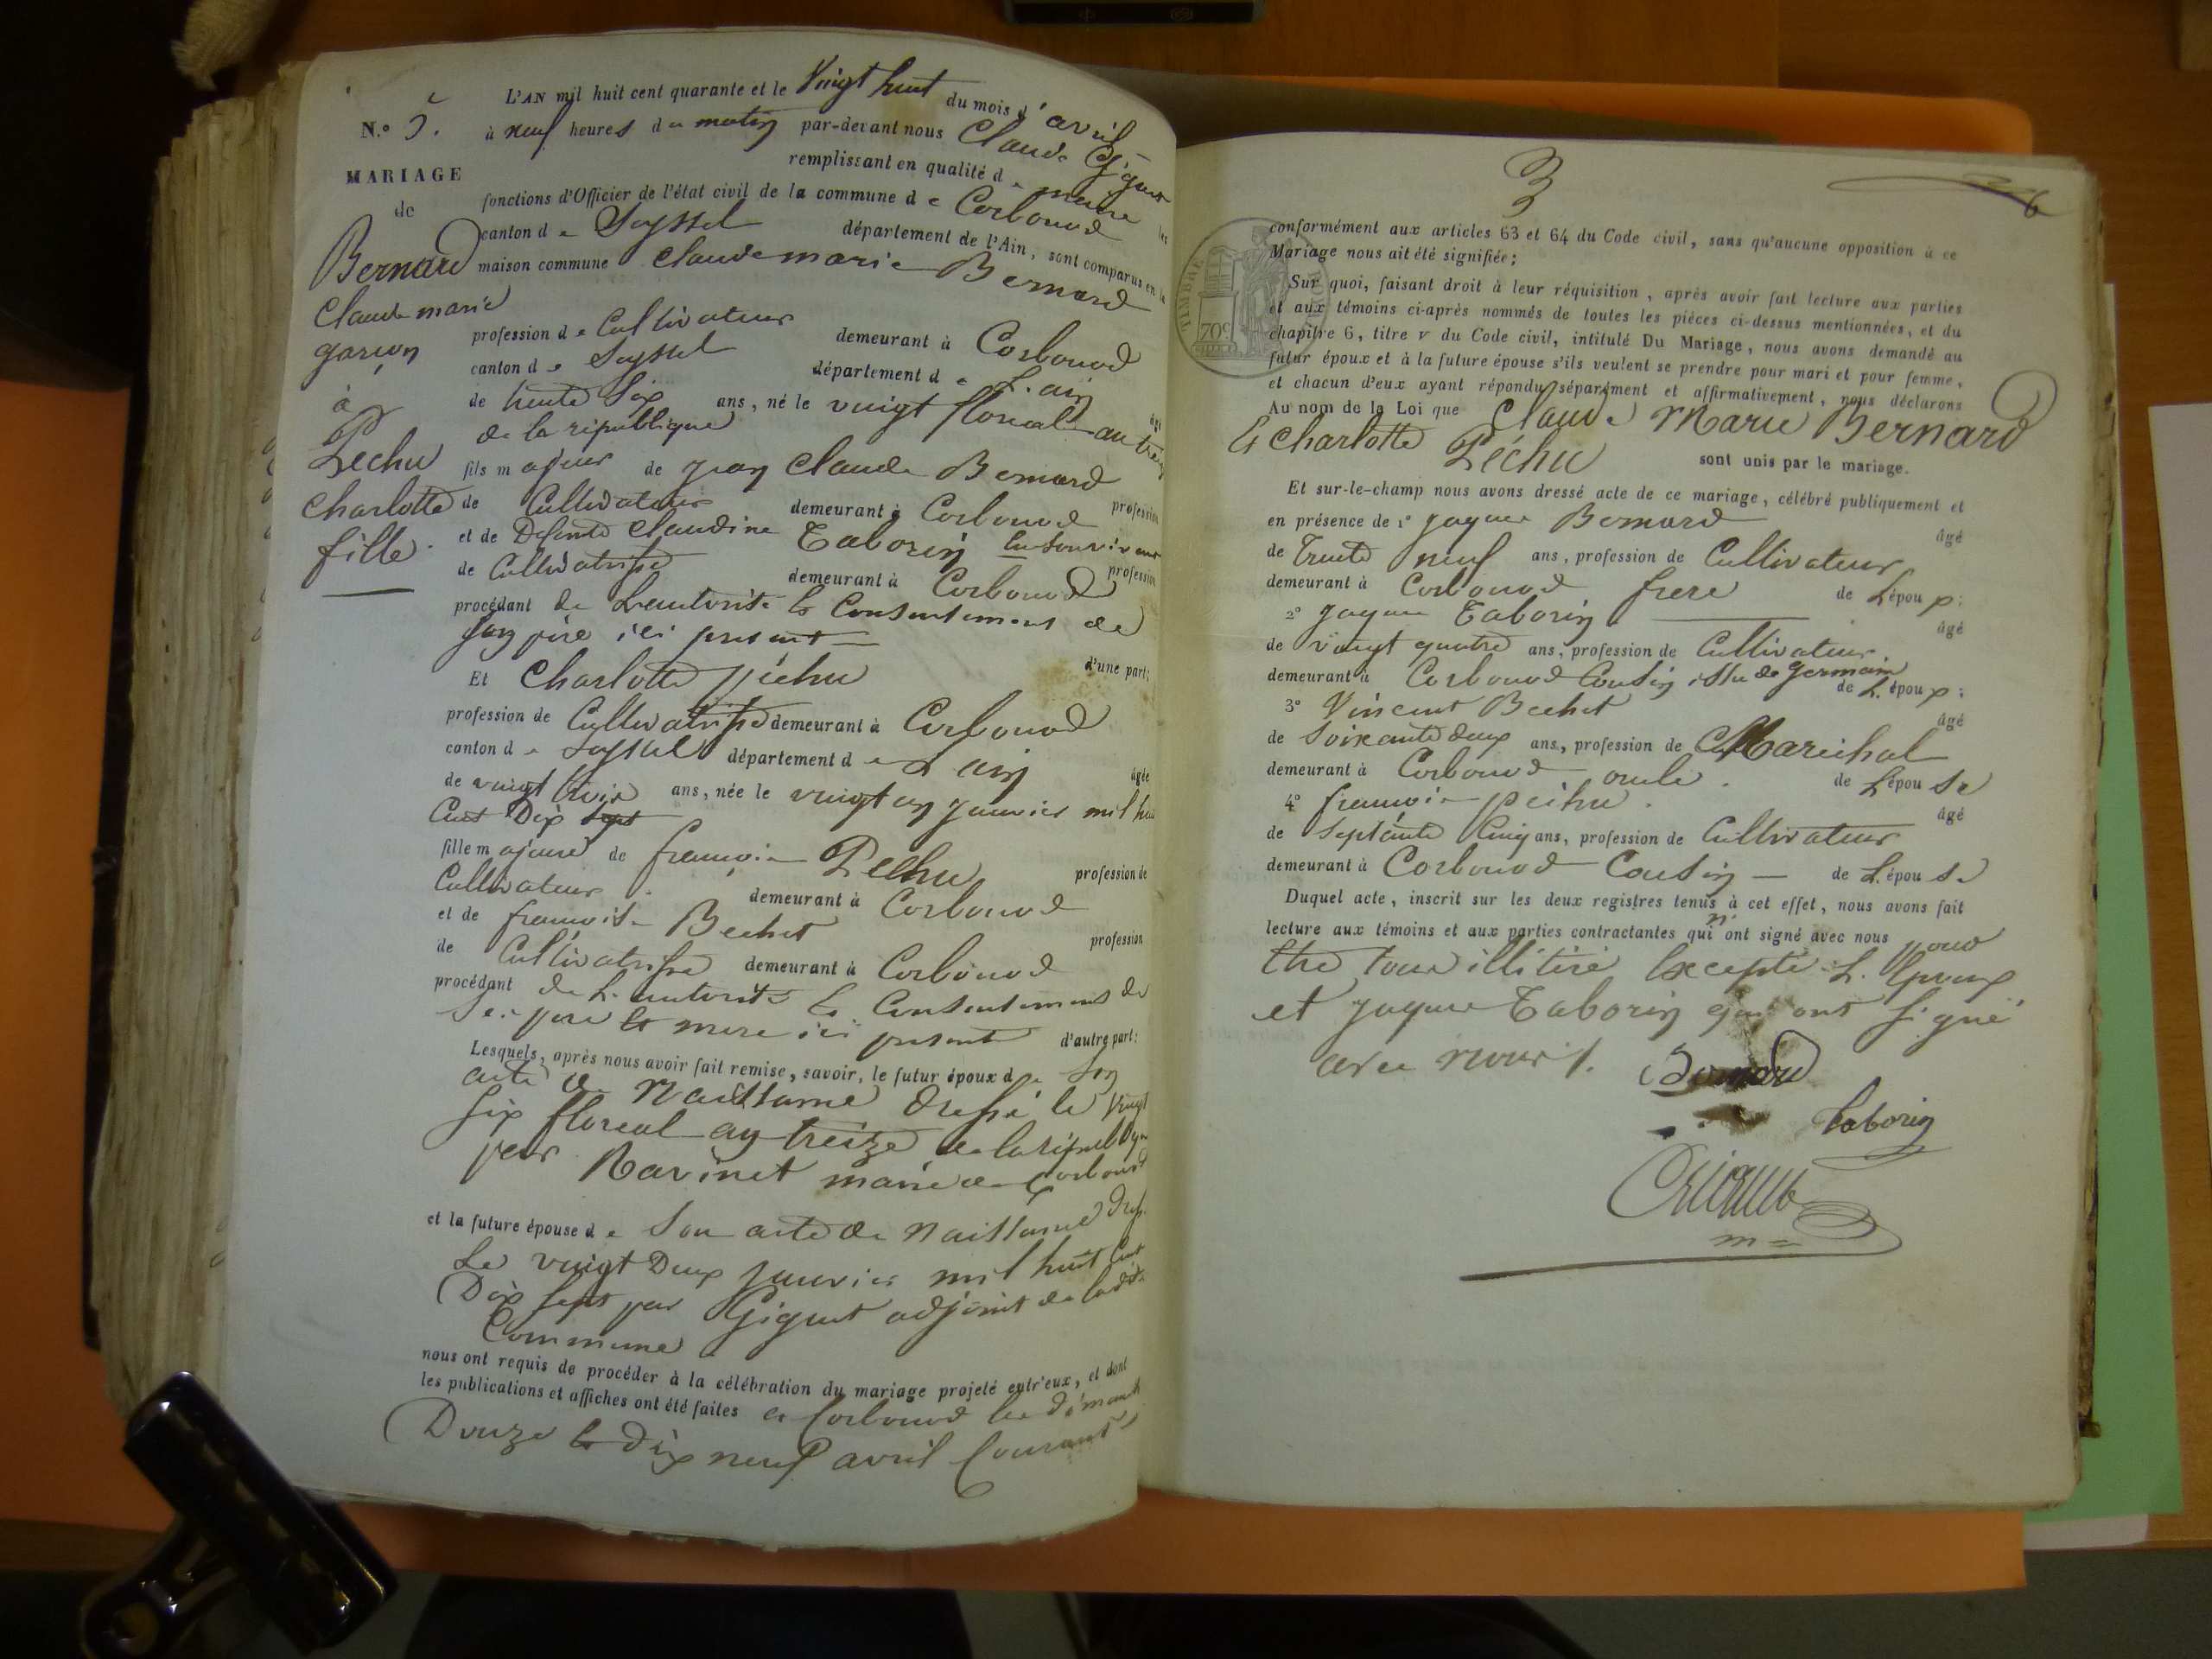 N.º 5.
MARIAGE
de
Bernard
Claude marie
garçon
à
Pechu
Charlotte
fille.
L'AN mil huit cent quarante et le Vingt huit du mois d'avril
à neuf heures du matin par-devant nous Claude
remplissant en qualité de maire les
fonctions d'Officier de l'état civil de la commune de Corbonod
canton de Seyssel département de l'Ain, sont comparus en la
maison commune Claude marie Bernard
profession de Cultivateur demeurant à Corbonod
canton de Seyssel département de L'ain âgé
de trente Six ans, né le vingt floreal an treize
de la république
fils majeur de jean Claude Bernard profession
de Cultivateur demeurant à Corbonod
et de Defunte Claudine Taborin profession
de Cultivatrisse demeurant à Corbonod
procédant de L'autorité & Consentement de
son père ici present
d'une part;
Et Charlotte péchu
profession de Cultivatrisse demeurant à Corbonod
canton de Seyssel département de L'ain âgée
de vingt trois ans, née le vingt un janvier mil huit
Cent Dix Sept
fille majeure de françois Pechu profession de
Cultivateur demeurant à Corbonod
et de françoise Bechet profession
de Cultivatrisse demeurant à Corbonod
procédant de L'autorité & Consentement de
Ses pere & mere ici present d'autre part:
Lesquels, après nous avoir fait remise, savoir, le futur époux de Son
acte de Naissance dressé le vingt
six floreal an treize de la république
par Ravinet maire de Corbonod
et la future épouse de Son acte de Naissance
Le vingt Deux janvier mil huit Cent
Dix sept par Giguet adjoint de ladite
Commune
nous ont requis de procéder à la célébration du mariage projeté entr'eux, et dont
les publications et affiches ont été faites à Corbonod les dimanche
Douze & dix neuf avril Courant
3
6
TIMBRE ROYAL
70c
conformément aux articles 63 et 64 du Code civil, sans qu'aucune opposition à ce
Mariage nous ait été signifiée;
Sur quoi, faisant droit à leur réquisition, après avoir fait lecture aux parties
et aux témoins ci-après nommés de toutes les pièces ci-dessus mentionnées, et du
chapitre 6, titre v du Code civil, intitulé Du Mariage, nous avons demandé au
futur époux et à la future épouse s'ils veulent se prendre pour mari et pour femme,
et chacun d'eux ayant répondu séparément et affirmativement, nous déclarons
Au nom de la Loi que Claude Marie Bernard
Et Charlotte Péchu sont unis par le mariage.
Et sur-le-champ nous avons dressé acte de ce mariage, célébré publiquement et
en présence de 1º jaques Bernard âgé
de Trente neuf ans, profession de Cultivateur
demeurant à Corbonod frere de L'époux;
2º jaques Taborin âgé
de vingt quatre ans, profession de Cultivateur
demeurant à Corbonod Cousin issu de Germain de L'époux;
3º Vincent Bechet âgé
de Soixante deux ans, profession de Maréchal
demeurant à Corbonod oncle de L'épouse
4º françois péchu âgé
de Septante Cinq ans, profession de Cultivateur
demeurant à Corbonod Cousin de L'épouse
Duquel acte, inscrit sur les deux registres tenus à cet effet, nous avons fait
lecture aux témoins et aux parties contractantes qui n'ont signé avec nous pour
être tous illitiré Excepté L'Epoux
et jaques Taborin qui ont signé
avec nous.
Bernard
Taborin